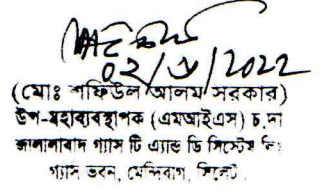 02/ /2022
(মোঃ শফিউল আলম সরকার)
উপ-মহাব্যবস্থাপক (এমআইএস) চ.দা
জালালাবাদ গ্যাস টি এ্যান্ড ডি সিস্টেম লিঃ
গ্যাস ভবন, মেন্দিবাগ, সিলেট